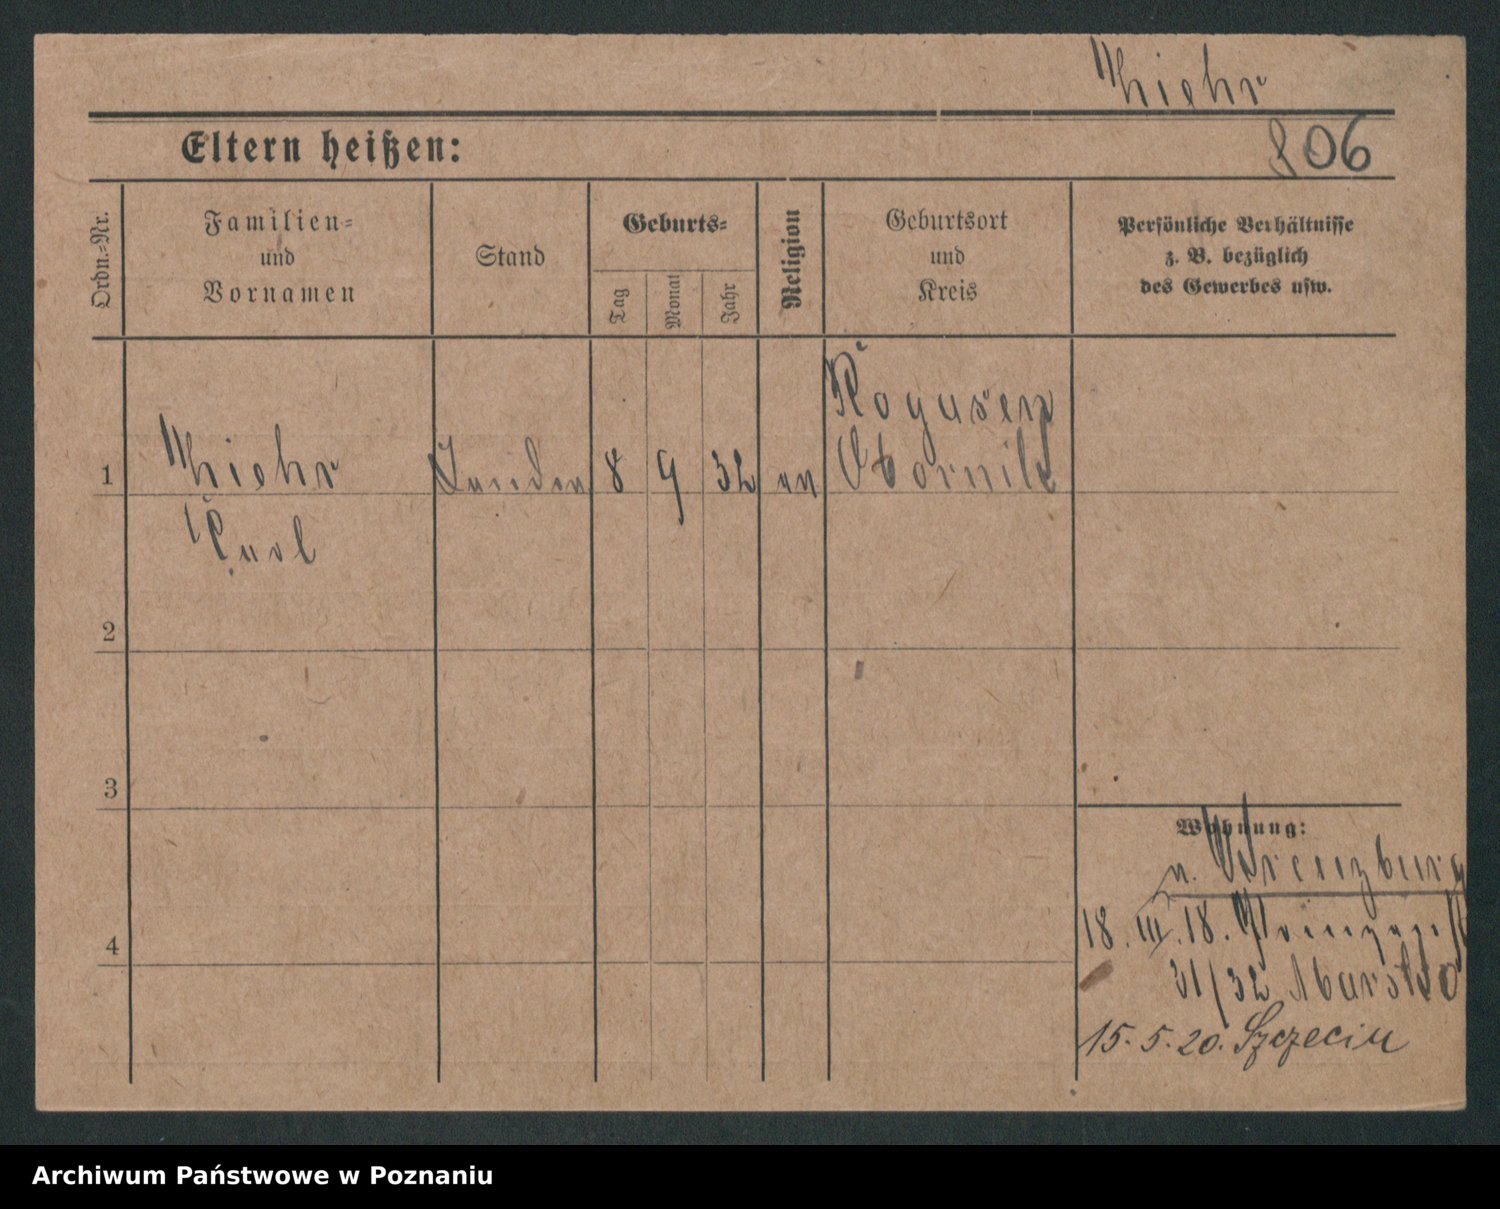 Thiehr
806
Eltern heißen:
Ordn.-Nr.
Familien-
und
Vornamen
Stand
Geburts-
Tag
Monat
Jahr
Religion
Geburtsort
und
Kreis
Persönliche Verhältnisse
z. B. bezüglich
des Gewerbes usw.
1
8 9 32
Rogasen
Obornik
Carl
2
3
4
Wohnung:
n. Kreuzburg
18. III. 18.
31/32
15. 5. 20. Szczecin
Archiwum Państwowe w Poznaniu